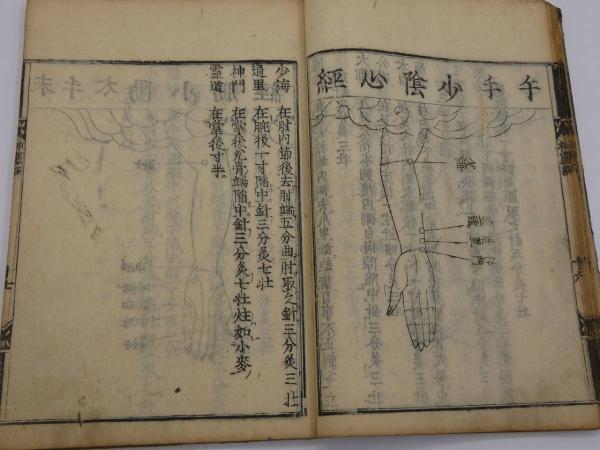 午手少陰心經
少海
靈道
通里
神門
少海 在肘内節後去肘端五分曲肘取之針三分灸三壯
通里 在腕後一寸陥中針三分灸七壯
神門 在掌後兊骨端陥中針三分灸七壯炷如小麥
靈道 在掌後寸半
神應經